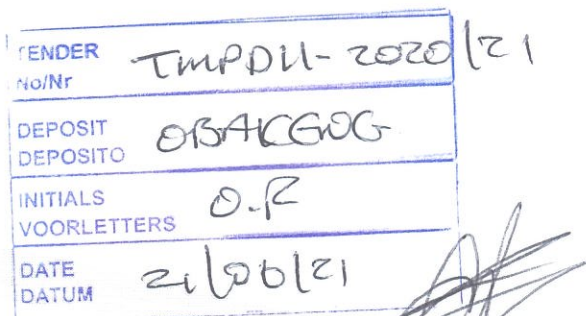 TENDER
No/Nr
TMPDM-2020/21
DEPOSIT
DEPOSITO
INITIALS
VOORLETTERS
O.R
DATE
DATUM
21/06/21